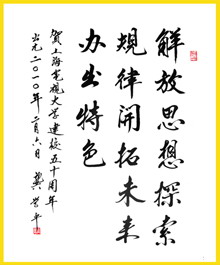 解放思想探索
規律開拓未来
办出特色
賀上海電視大学建校五十周年
公元二〇一〇年二月六日 龔学平